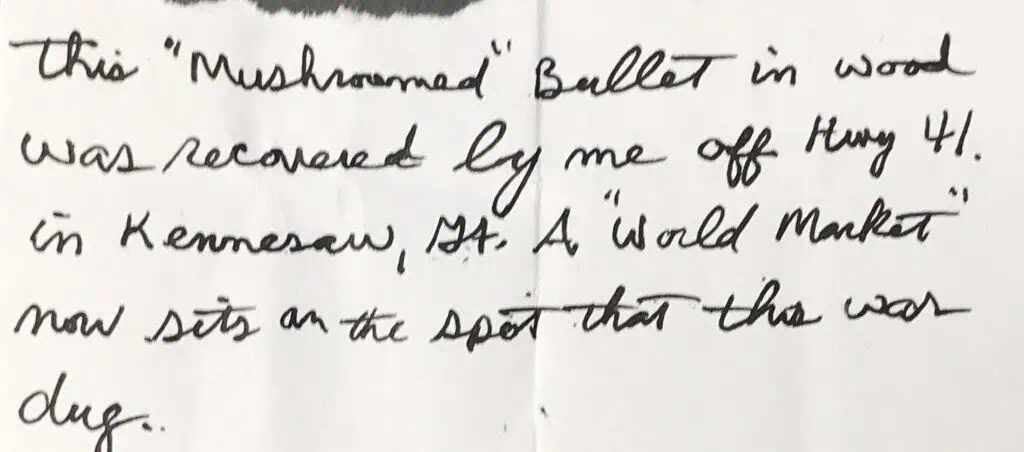 This "Mushroomed" Bullet in wood
was recovered by me off Hwy 41.
in Kennesaw, GA. A "World Market"
now sits on the spot that this was
dug.